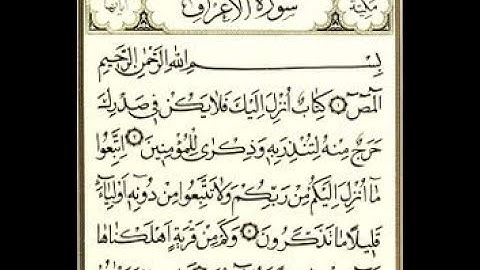 مكية سورة الأعراف آياتها
بِسْمِ اللهِ الرَّحْمٰنِ الرَّحِيمِ
الٓمٓصٓ ۝ كِتَابٌ اُنْزِلَ اِلَيْكَ فَلَا يَكُنْ فِي صَدْرِكَ
حَرَجٌ مِنْهُ لِتُنْذِرَ بِهِ وَذِكْرٰى لِلْمُؤْمِنِينَ ۝ اِتَّبِعُوا
مَا اُنْزِلَ اِلَيْكُمْ مِنْ رَبِّكُمْ وَلَا تَتَّبِعُوا مِنْ دُونِهِٓ اَوْلِيَٓاءَ
قَلِيلًا مَا تَذَكَّرُونَ ۝ وَكَمْ مِنْ قَرْيَةٍ اَهْلَكْنَاهَا